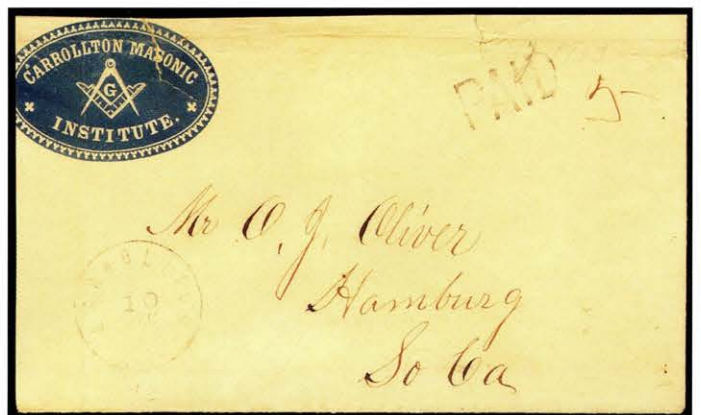 CARROLLTON MASONIC
G
INSTITUTE.
PAID 5
Mr O. J. Oliver
Hamburg
So Ca
10